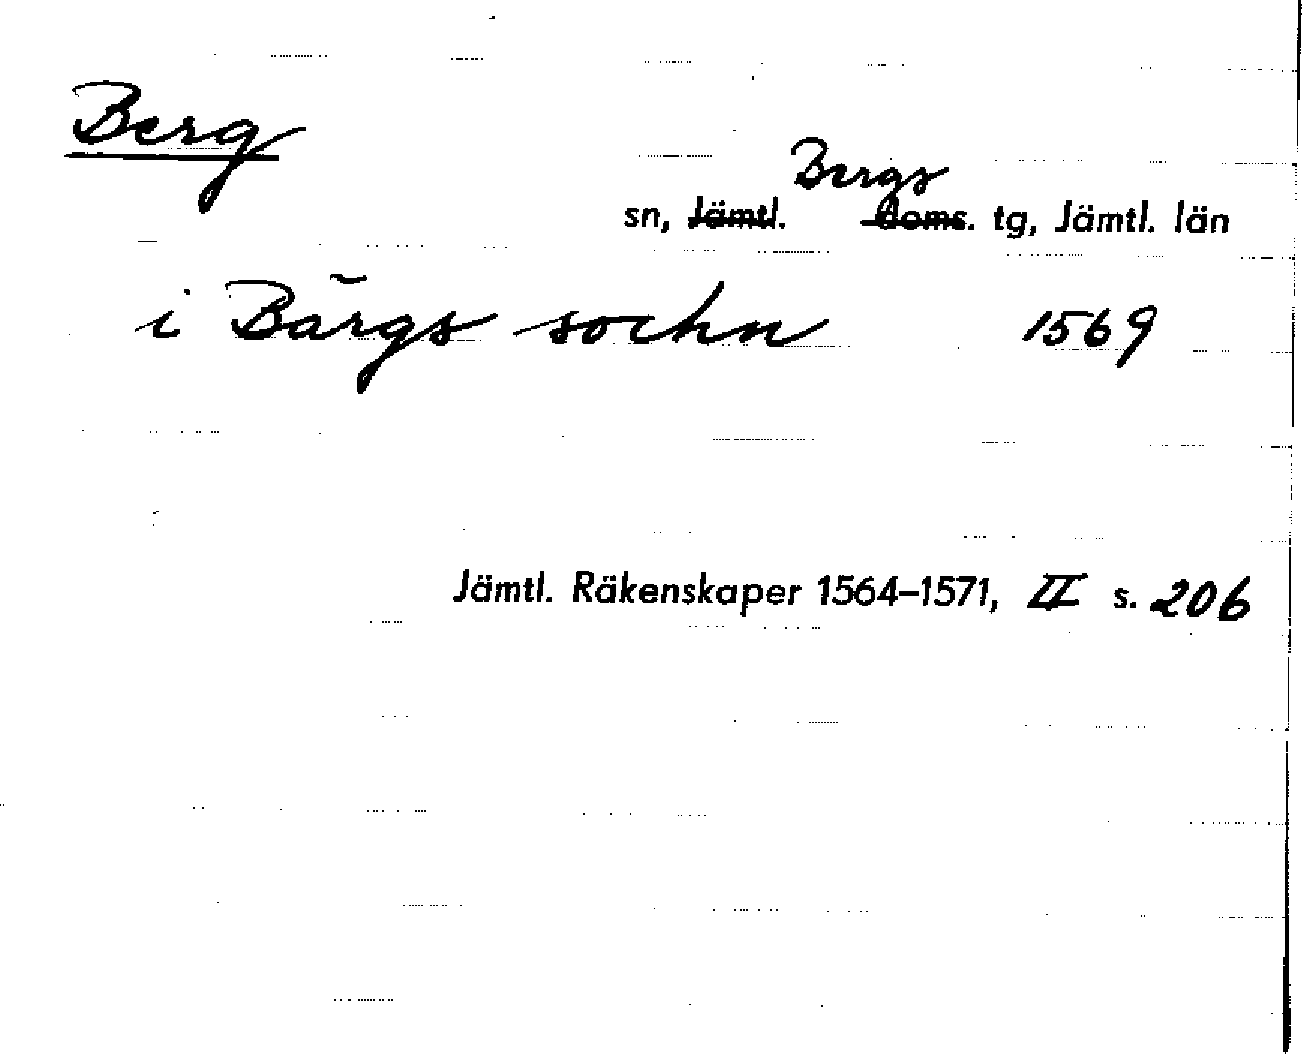 Berg
Bergs
sn, Jämtl. Doms. tg, Jämtl. län
i Bārgs sochn 1569
Jämtl. Räkenskaper 1564–1571, II s. 206